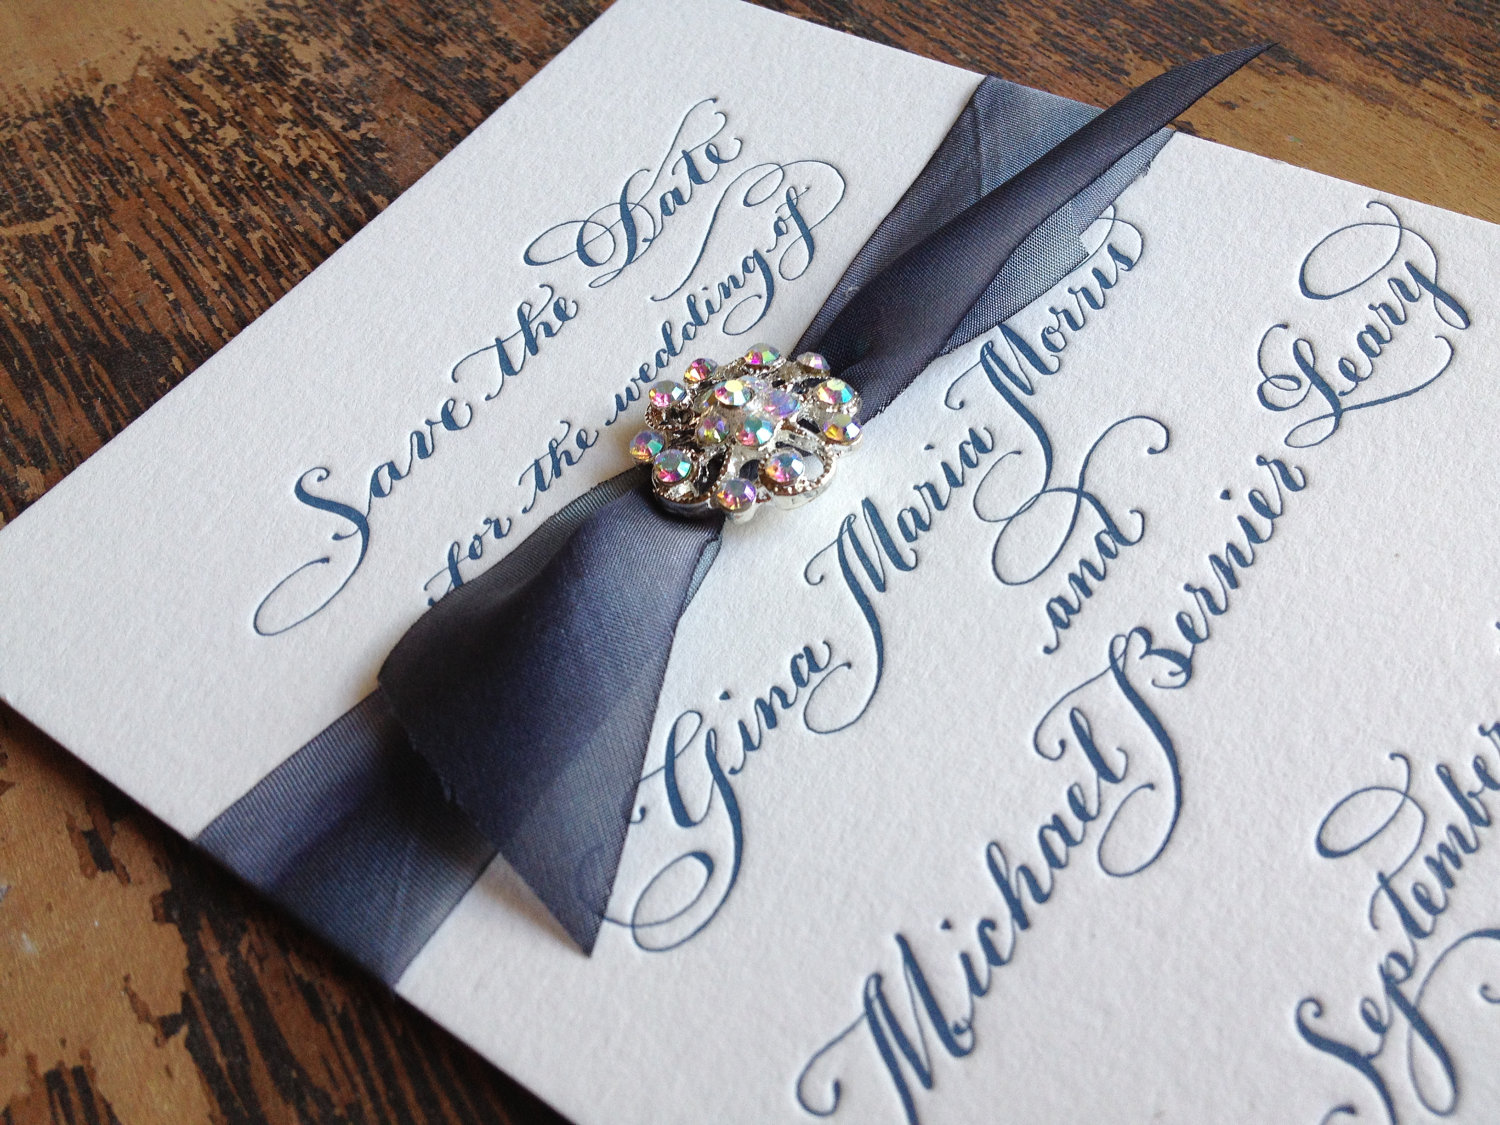 Save the Date
for the wedding of
Gina Maria Morris
and
Michael Bernier Leary
September